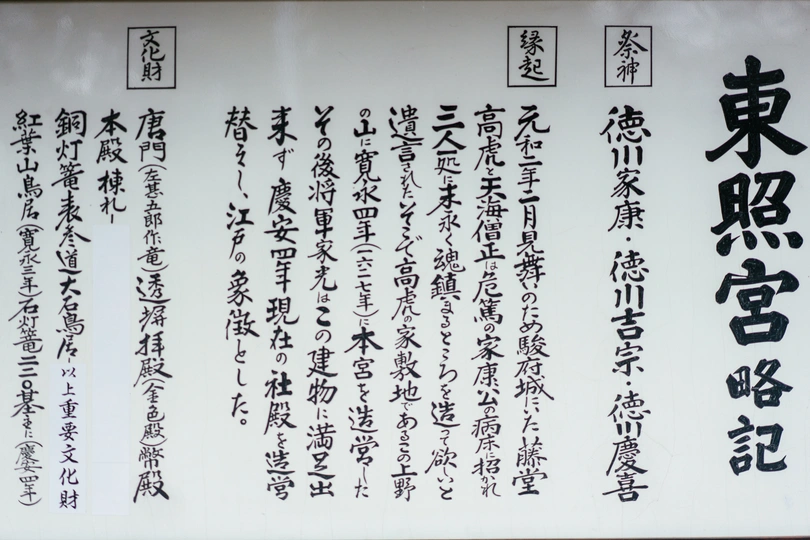 東照宮略記
祭神
徳川家康・徳川吉宗・徳川慶喜
縁起
元和二年二月見舞いのため駿府城にいた藤堂
高虎と天海僧正は危篤の家康公の病床に招かれ
三人一処に末永く魂鎮まるところを造って欲いと
遺言されたそこで高虎の家敷地であるこの上野
の山に寛永四年(一六二七年)に本宮を造営した
その後将軍家光はこの建物に満足出
来ず慶安四年現在の社殿を造営
替えし、江戸の象徴とした。
文化財
唐門(左甚五郎作竜)透塀拝殿(金色殿)幣殿
本殿棟札一
銅灯篭表参道大石鳥居以上重要文化財
紅葉山鳥居(寛永三年)石灯篭二二〇基(慶安四年)